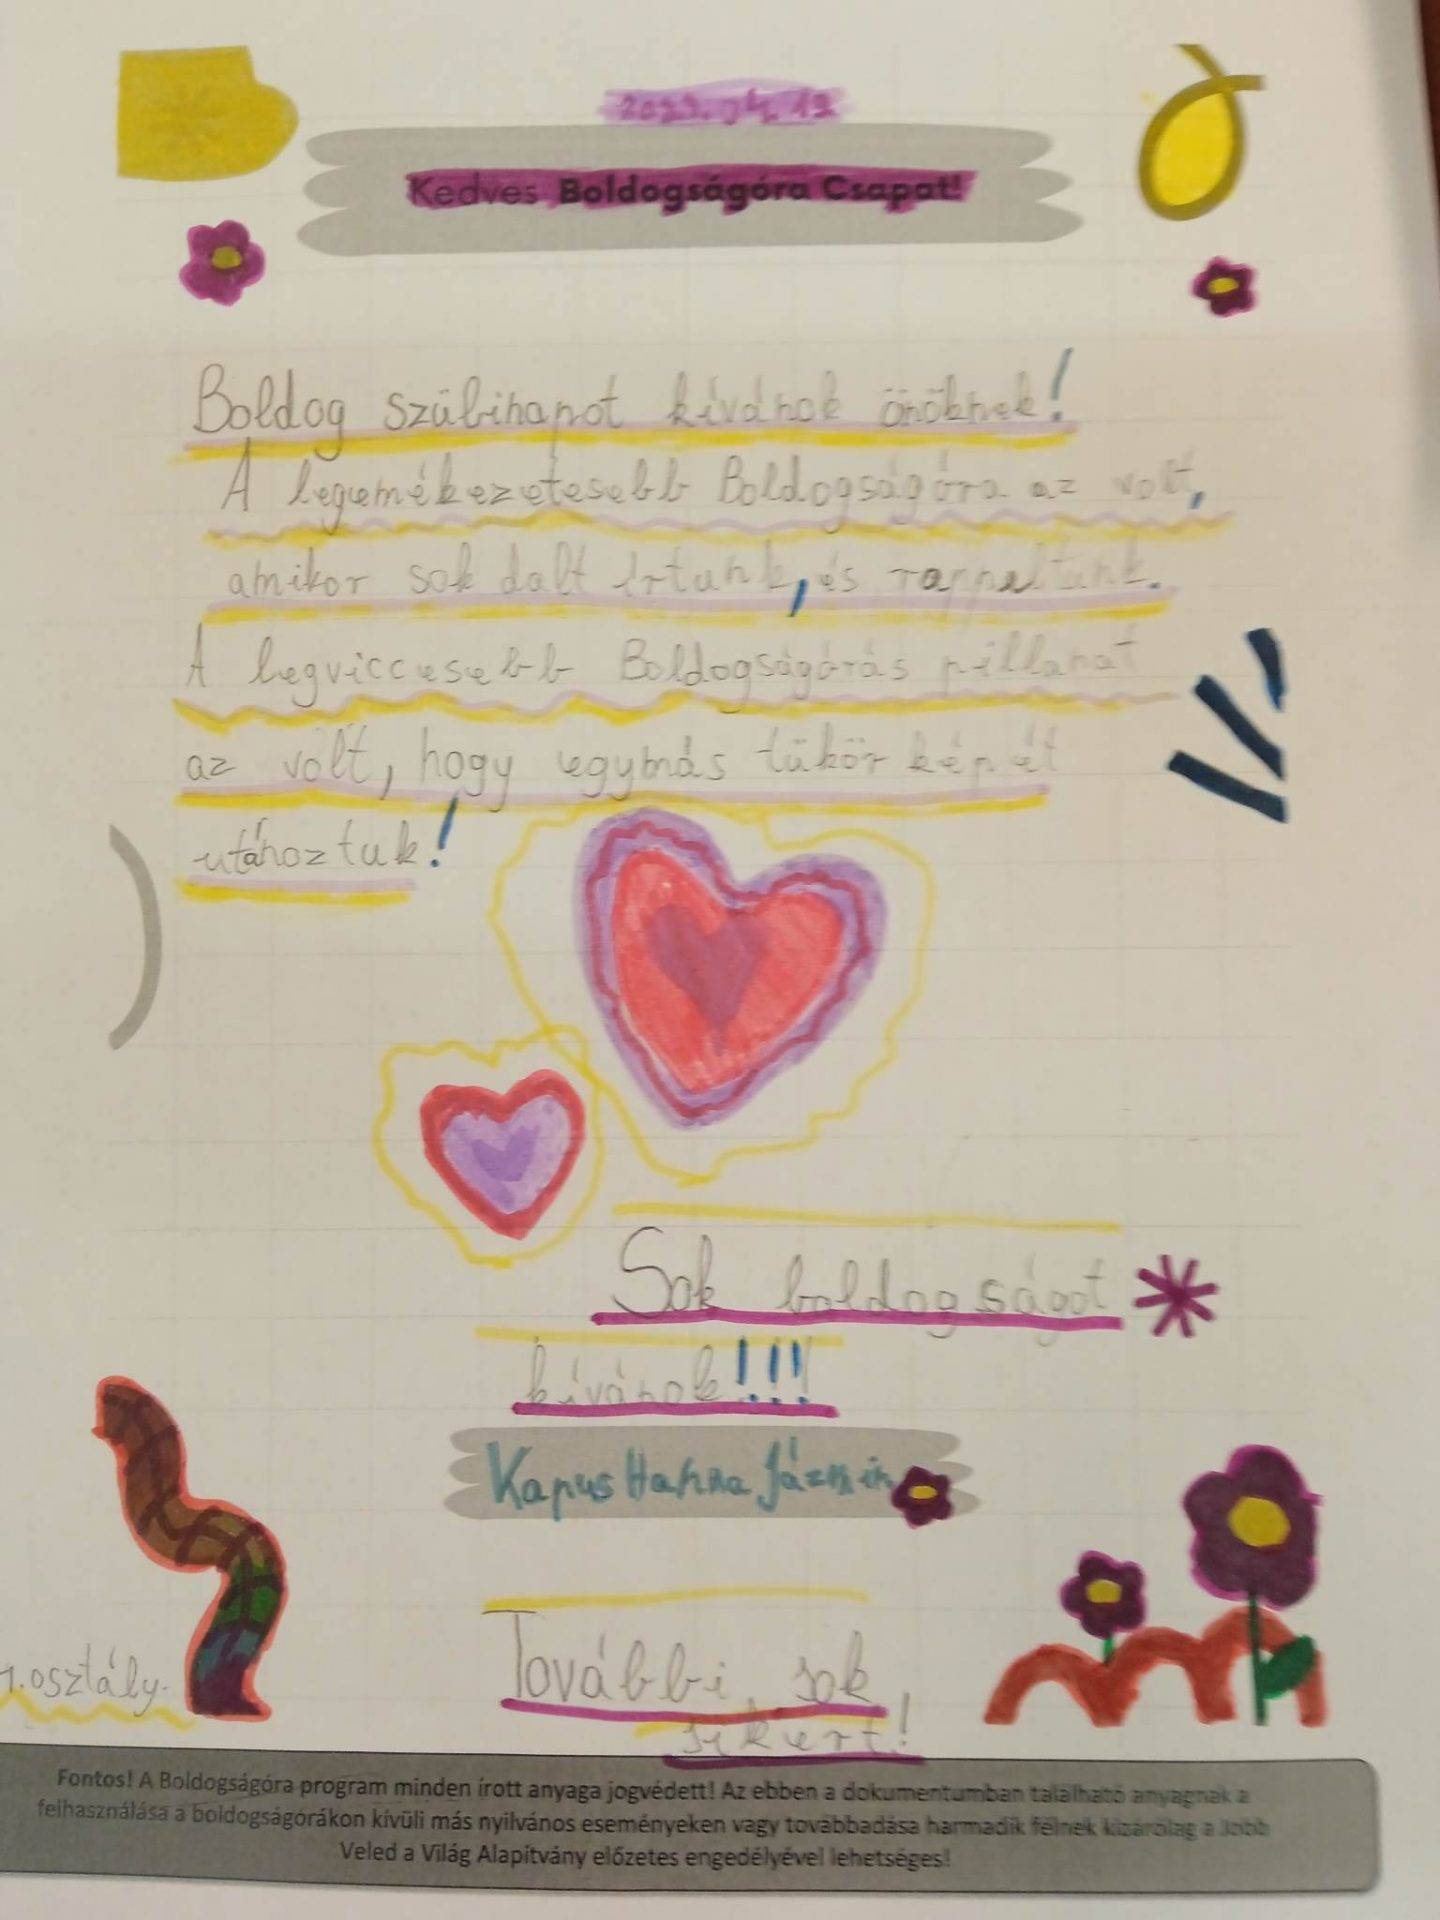 Kedves Boldogságóra Csapat!
Boldog szülinapot kívánok önöknek!
A legemékezetesebb Boldogságóra az volt,
amikor sok dalt írtunk, és rappeltünk.
A legviccesebb Boldogságórás pillanat
az volt, hogy egymás tükör képét
utánoztuk!
Sok boldogságot
kívánok!!!!
Kapus Hanna Jázmin
osztály.
További sok
sikert!
Fontos! A Boldogságóra program minden írott anyaga jogvédett! Az ebben a dokumentumban található anyagnak a
felhasználása a boldogságórákon kívüli más nyilvános eseményeken vagy továbbadása harmadik félnek kizárólag a Jobb
Veled a Világ Alapítvány előzetes engedélyével lehetséges!